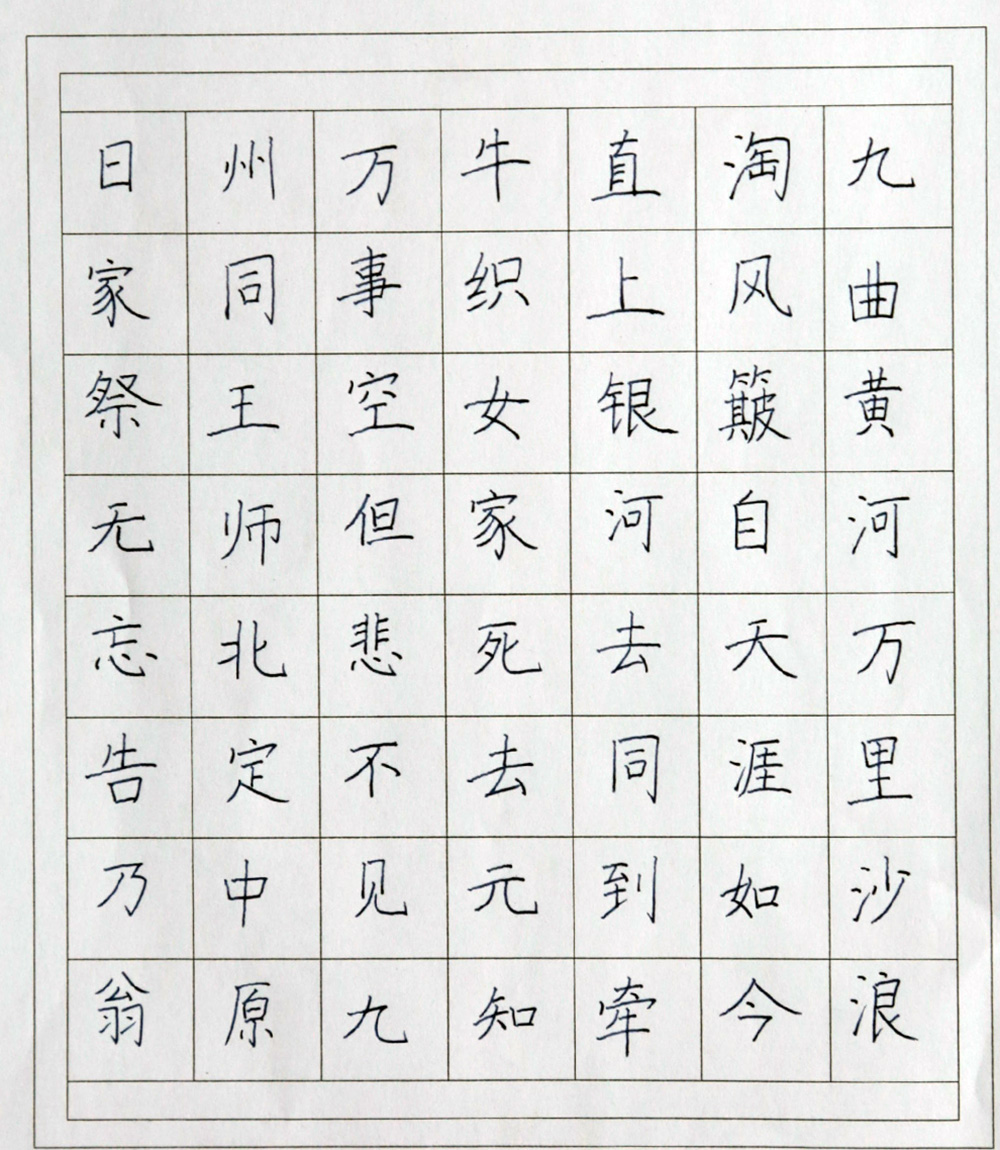 九曲黄河万里沙浪
淘风簸自天涯如今
直上银河去同到牵
牛织女家死去元知
万事空但悲不见九
州同王师北定中原
日家祭无忘告乃翁